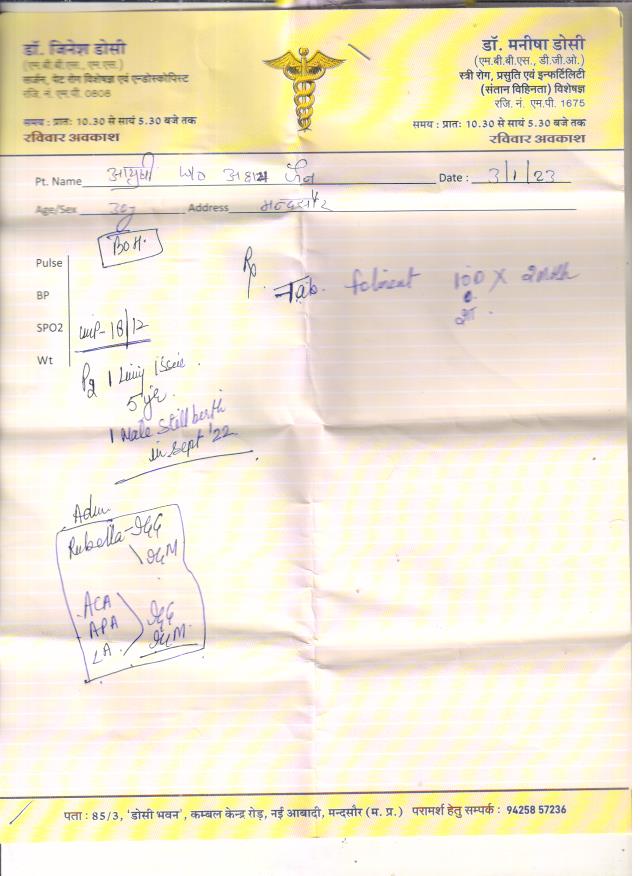 डॉ. जिनेश डोसी
(एम.बी.बी.एस., एम.एस.)
सर्जन, पेट रोग विशेषज्ञ एवं एन्डोस्कोपिस्ट
रजि. नं. एम.पी. 0808
समय : प्रातः 10.30 से सायं 5.30 बजे तक
रविवार अवकाश
डॉ. मनीषा डोसी
(एम.बी.बी.एस., डी.जी.ओ.)
स्त्री रोग, प्रसुति एवं इन्फर्टिलिटी
(संतान विहिनता) विशेषज्ञ
रजि. नं. एम.पी. 1675
समय : प्रातः 10.30 से सायं 5.30 बजे तक
रविवार अवकाश
Pt. Name आयुषी w/o अक्षय जैन Date : 3/1/23
Age/Sex Address मन्दसौर
BOH.
Pulse
BP
SPO2 LMP - 18/12
Wt
P2 1 Living issue
5 yr.
1 Male still birth
in Sept '22
Rp
Tab. 100 X 2
Adm.
Rubella - IgG
IgM
ACA
APA IgG
LA IgM
पता : 85/3, 'डोसी भवन', कम्बल केन्द्र रोड़, नई आबादी, मन्दसौर (म. प्र.) परामर्श हेतु सम्पर्क : 94258 57236